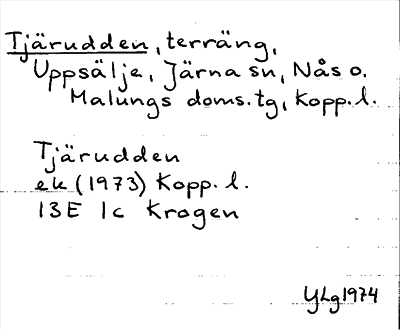 Tjärudden, terräng,
Uppsälje, Järna sn, Nås o.
Malungs doms.tg, Kopp. l.
Tjärudden
ek (1973) Kopp. l.
13E 1c Krogen
YLg 1974